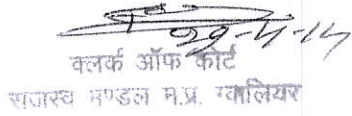 22-4-14
क्लर्क ऑफ कोर्ट
राजस्व मण्डल म.प्र. ग्वालियर